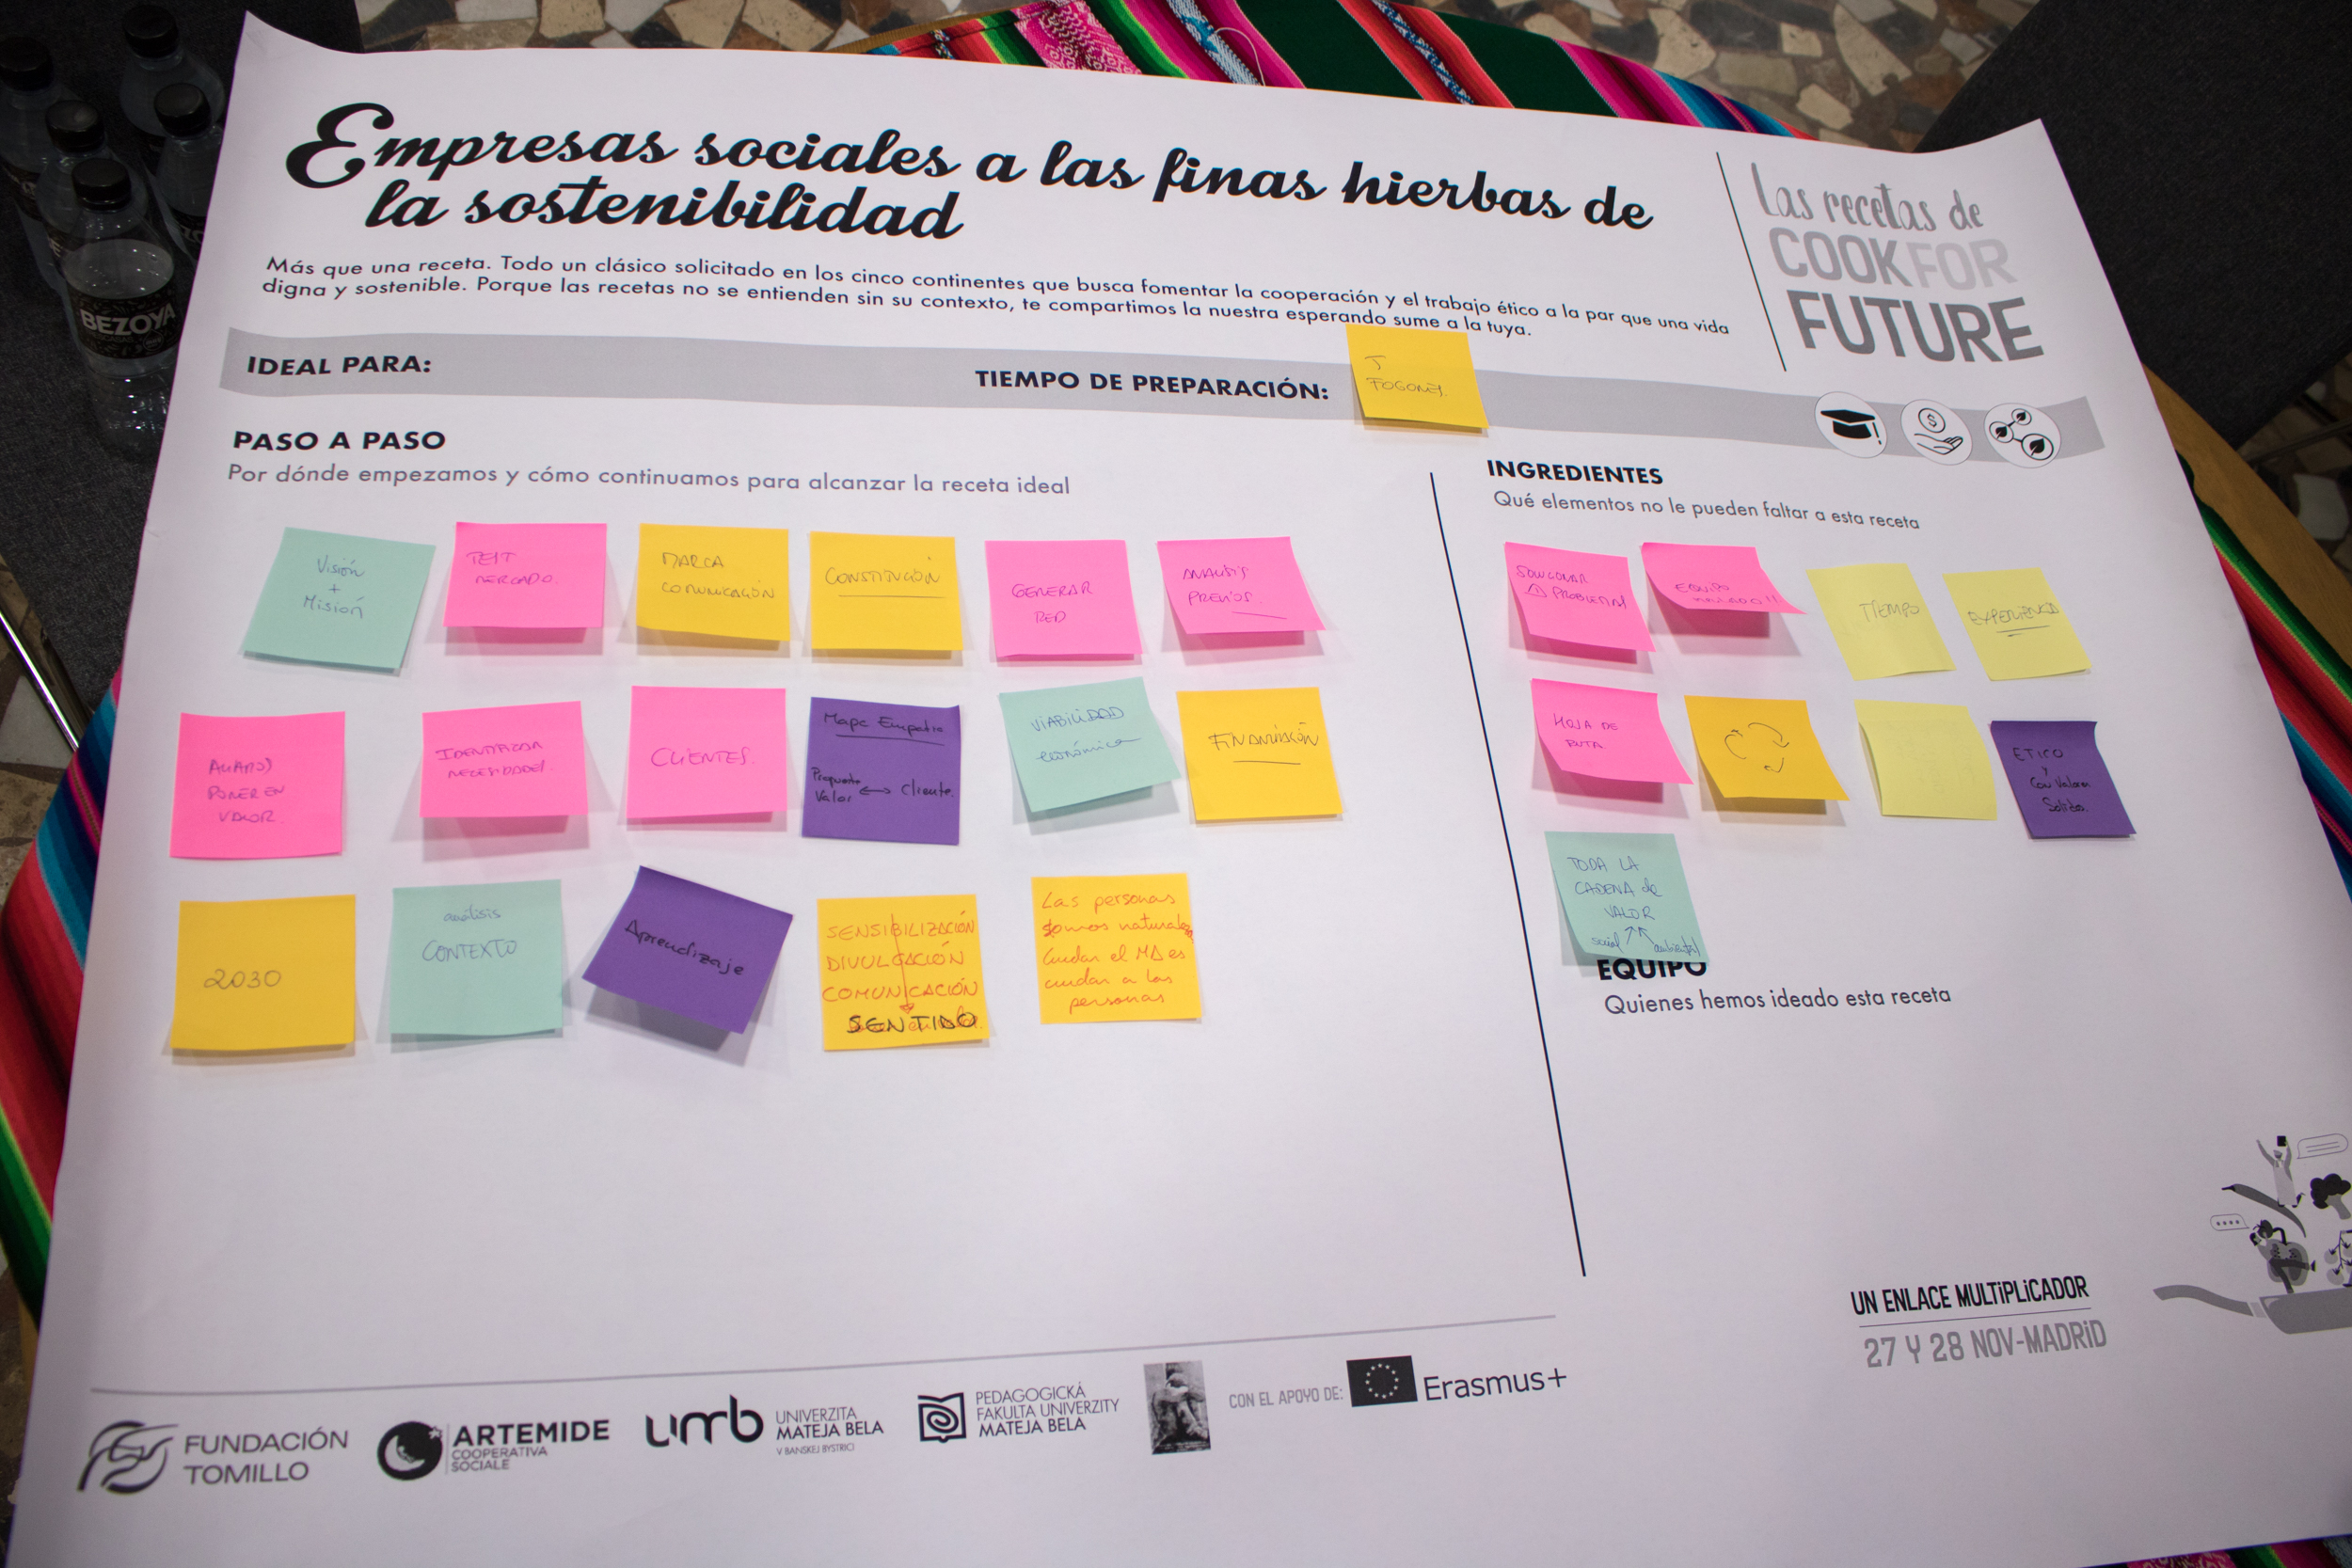 Empresas sociales a las finas hierbas de
la sostenibilidad
Más que una receta. Todo un clásico solicitado en los cinco continentes que busca fomentar la cooperación y el trabajo ético a la par que una vida
digna y sostenible. Porque las recetas no se entienden sin su contexto, te compartimos la nuestra esperando sume a la tuya.
Las recetas de
COOK FOR
FUTURE
IDEAL PARA:
TIEMPO DE PREPARACIÓN:
FOGONES.
PASO A PASO
Por dónde empezamos y cómo continuamos para alcanzar la receta ideal
Visión
+
Misión
TEST
MERCADO.
MARCA
COMUNICACIÓN
CONSTITUCIÓN
GENERAR
RED
ANALISIS
PREVIOS.
PONER EN
VALOR.
IDENTIFICAR
NECESIDADES.
CLIENTES.
Mapa Empatía
Propuesta
Valor ↔ Cliente.
VIABILIDAD
económica
FINANCIACIÓN
2030
análisis
CONTEXTO
Aprendizaje
SENSIBILIZACIÓN
DIVULGACIÓN
COMUNICACIÓN
SENTIDO
Las personas
somos naturaleza
cuidar el MA es
cuidar a las
personas
INGREDIENTES
Qué elementos no le pueden faltar a esta receta
SOLUCIONAR
PROBLEMAS
EQUIPO
TIEMPO
EXPERIENCIA
HOJA DE
RUTA.
ETICO
y
Con Valores
Solidos.
TODA LA
CADENA de
VALOR
social ambiental
EQUIPO
Quienes hemos ideado esta receta
UN ENLACE MULTiPLiCADOR
27 Y 28 NOV-MADRiD
FUNDACIÓN
TOMILLO
ARTEMIDE
COOPERATIVA
SOCIALE
umb
UNIVERZITA
MATEJA BELA
V BANSKEJ BYSTRICI
PEDAGOGICKÁ
FAKULTA UNIVERZITY
MATEJA BELA
CON EL APOYO DE:
Erasmus+
BEZOYA